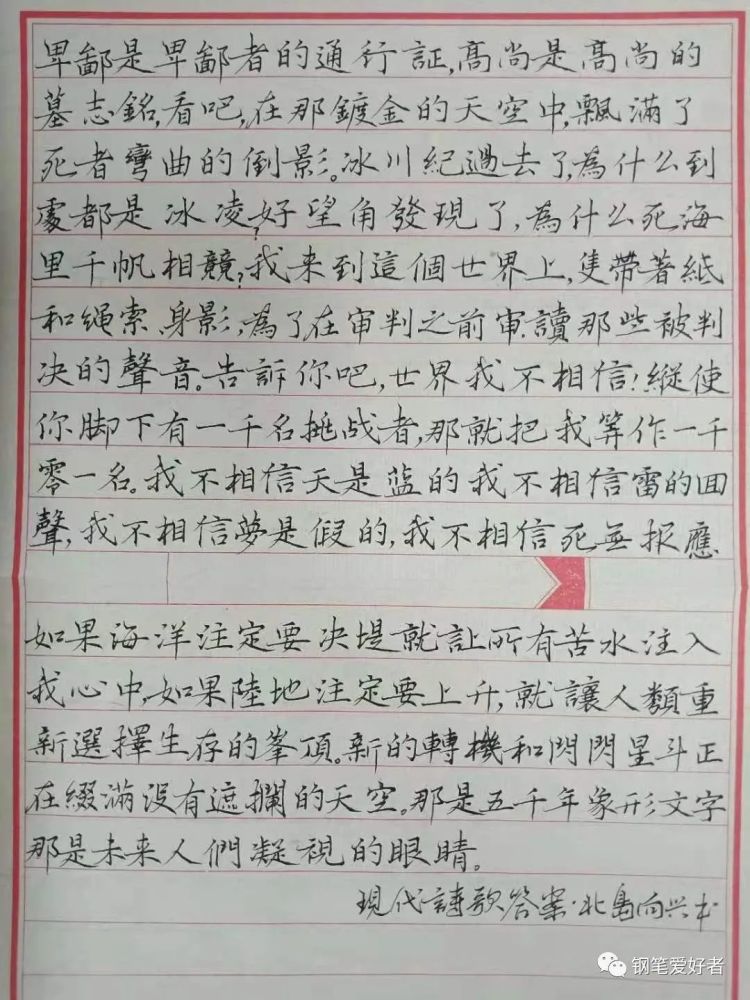 卑鄙是卑鄙者的通行証,髙尚是髙尚的
墓志銘,看吧,在那鍍金的天空中,飄滿了
死者彎曲的倒影。冰川紀過去了,為什么到
處都是冰凌?好望角發現了,為什么死海
里千帆相競?我来到這個世界上,隻帶著紙
和繩索身影,為了在审判之前审讀那些被判
决的聲音。告訴你吧,世界我不相信!縱使
你脚下有一千名挑战者,那就把我算作一千
零一名。我不相信天是蓝的我不相信雷的回
聲,我不相信夢是假的,我不相信死無报應
如果海洋注定要决堤就讓所有苦水注入
我心中,如果陸地注定要上升,就讓人類重
新選擇生存的峯頂。新的轉機和閃閃星斗正
在綴滿没有遮攔的天空。那是五千年象形文字
那是未来人們凝視的眼睛。
現代詩歌答案·北島向兴书
钢笔爱好者